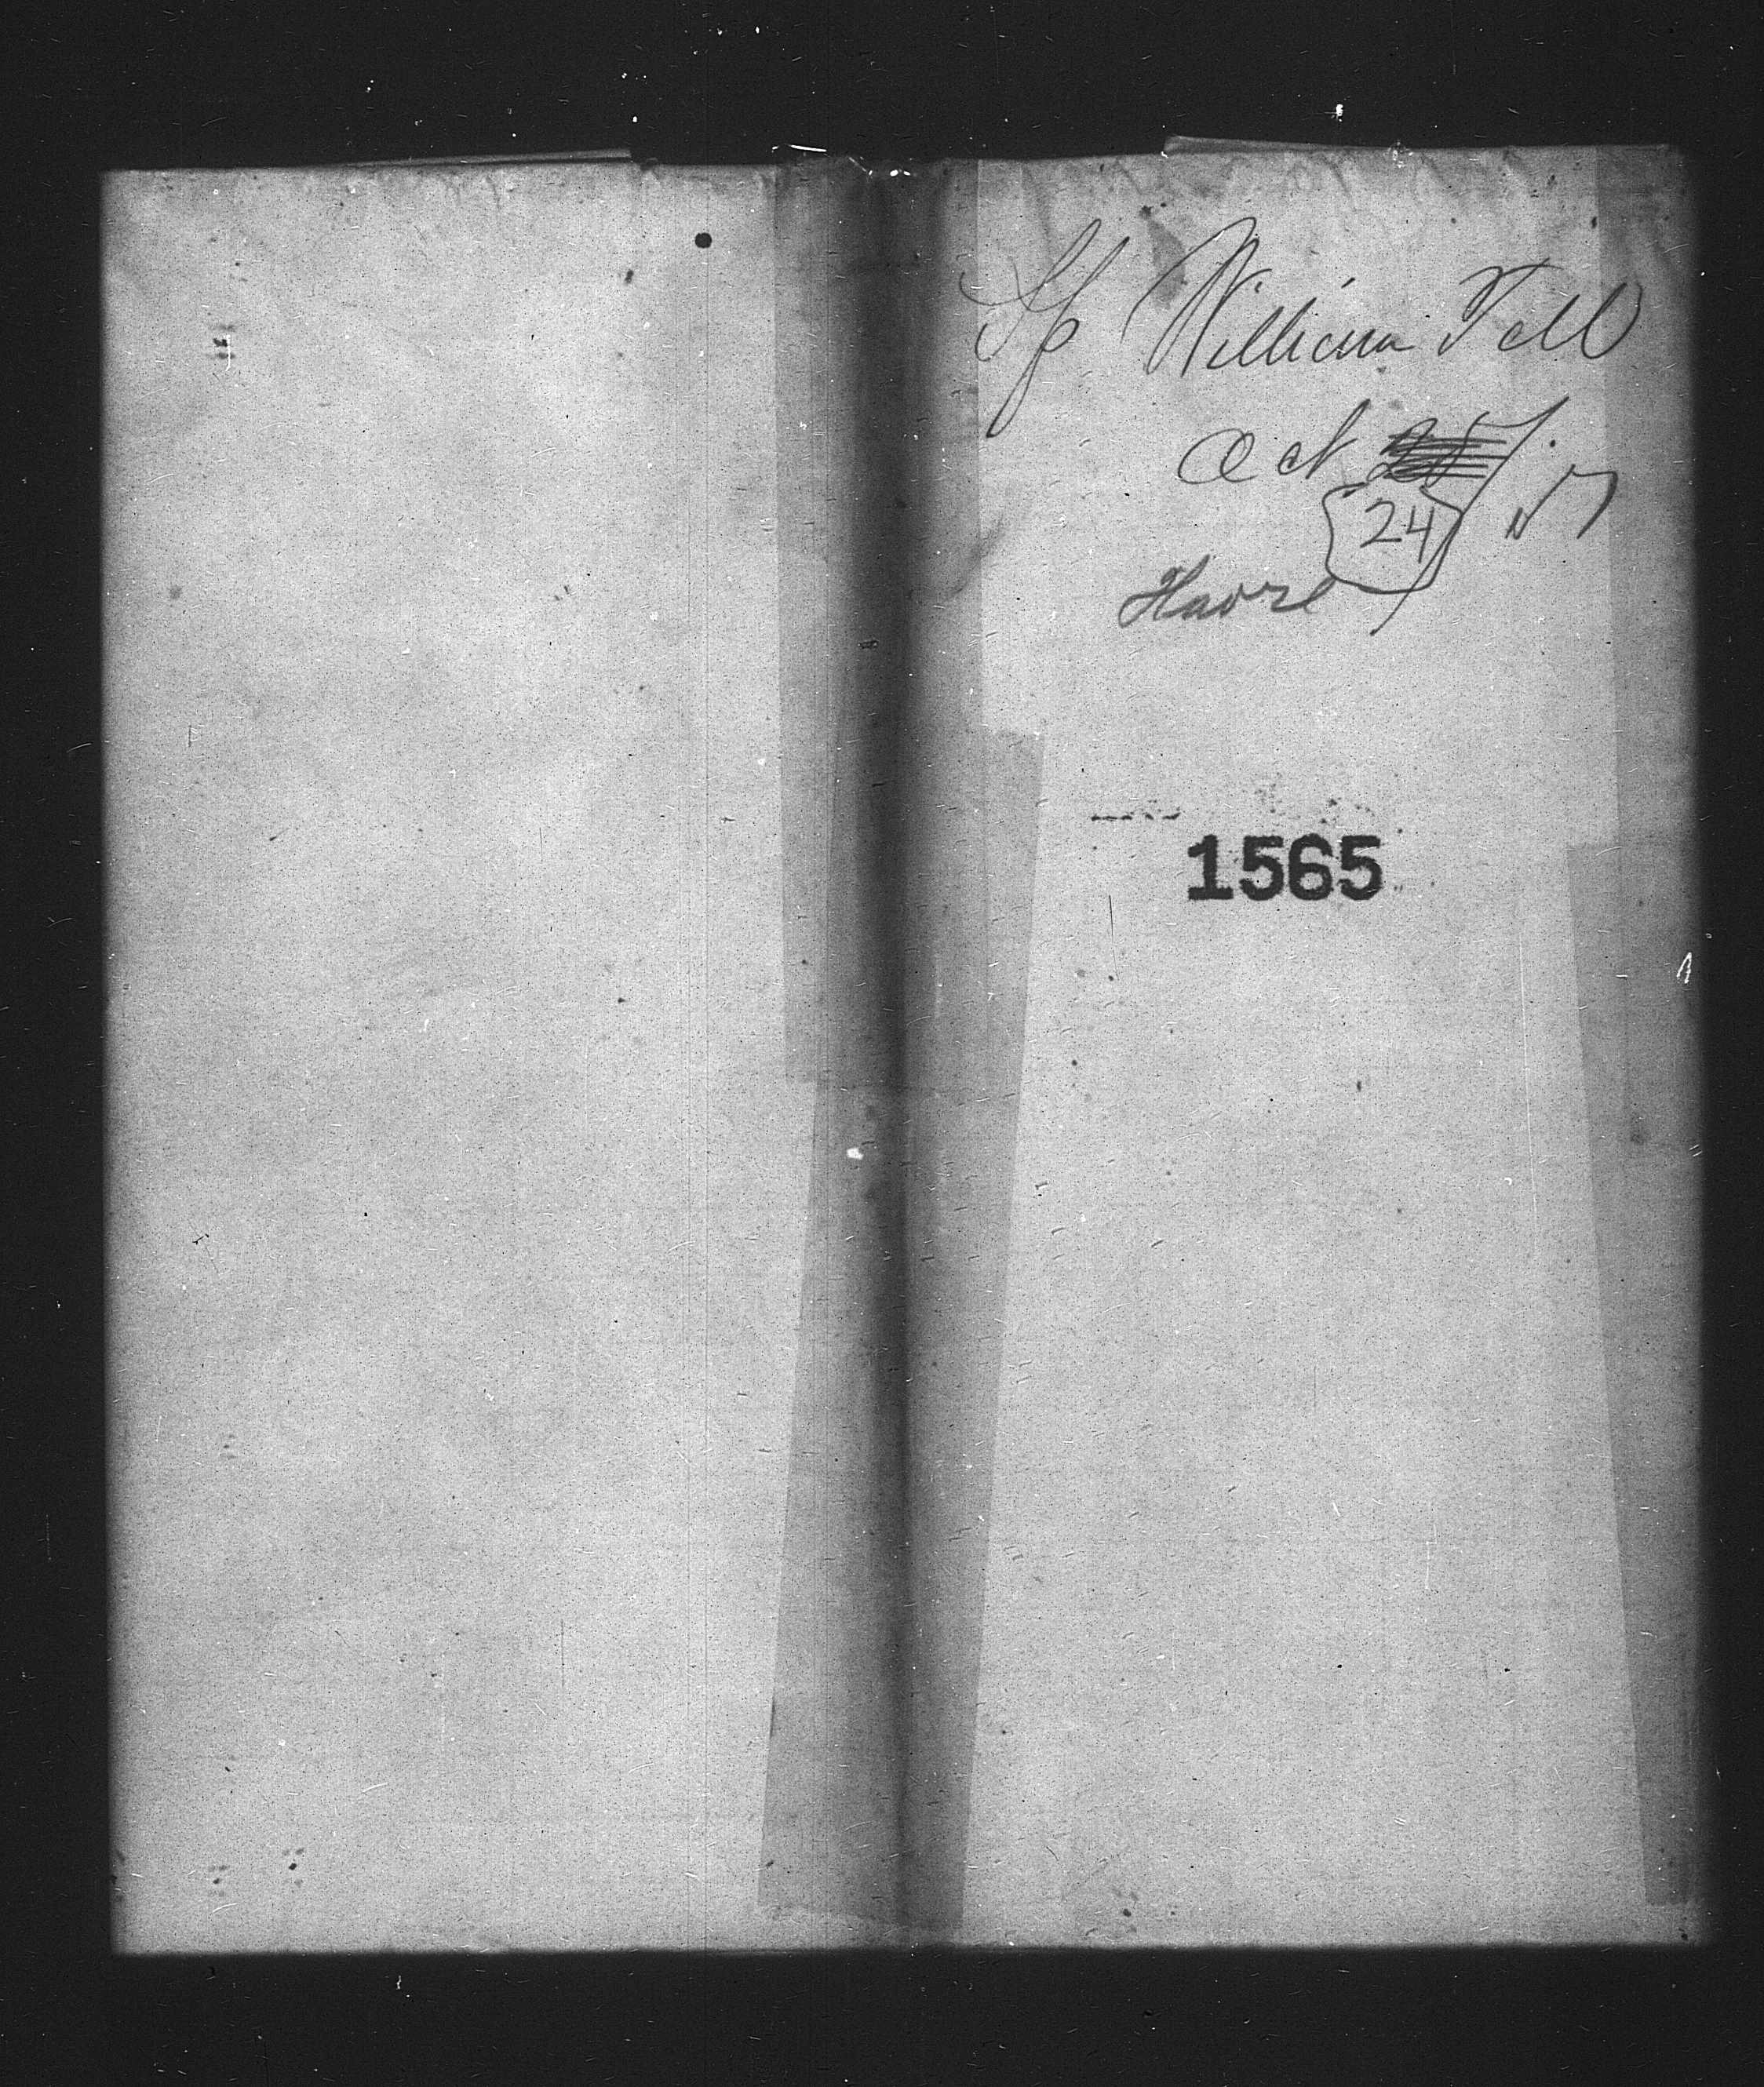 Sp William Tell
Oct
24
Havre
1565